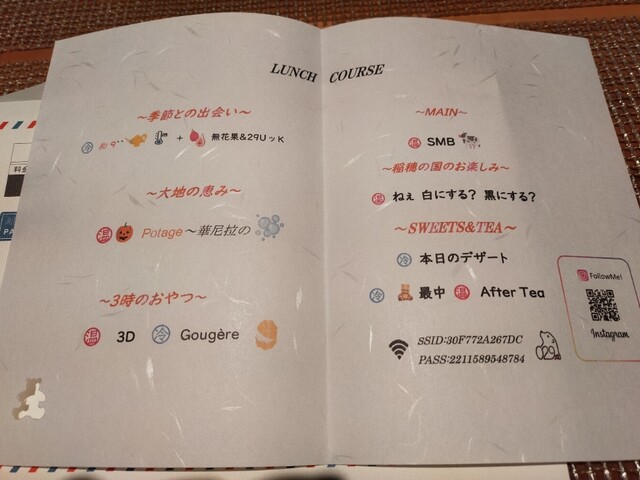 LUNCH COURSE
～季節との出会い～
冷 + 無花果&29UッK
～大地の恵み～
温 Potage～華尼拉の
～3時のおやつ～
温 3D 冷 Gougère
～MAIN～
温 SMB
～稲穂の国のお楽しみ～
温 ねぇ 白にする? 黒にする?
～SWEETS&TEA～
冷 本日のデザート
冷 最中 温 After Tea
SSID:30F772A267DC
PASS:2211589548784
FollowMe!
Instagram